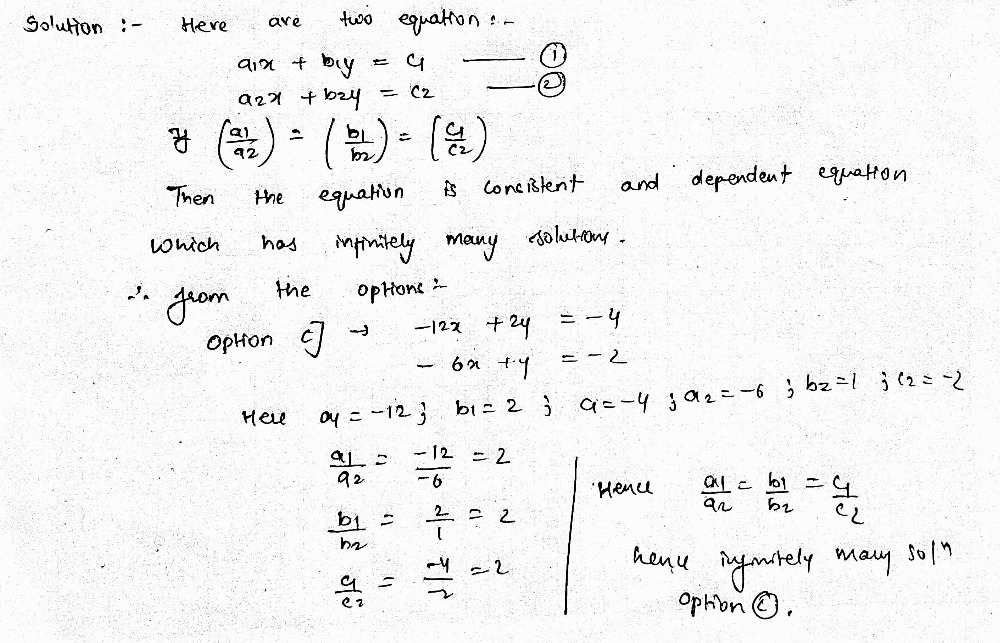 Solution :- Here are two equation :-
a1x + b1y = c1 —— ①
a2x + b2y = c2 —— ②
If (a1/a2) = (b1/b2) = (c1/c2)
Then the equation is concistent and dependent equation
which has infinitely many solutions.
∴ from the options :-
option c] → -12x + 2y = -4
- 6x + y = -2
Here a1 = -12 ; b1 = 2 ; c1 = -4 ; a2 = -6 ; b2 = 1 ; c2 = -2
a1/a2 = -12/-6 = 2
b1/b2 = 2/1 = 2
c1/c2 = -4/-2 = 2
Hence a1/a2 = b1/b2 = c1/c2
hence infinitely many solⁿ
option ⓒ.